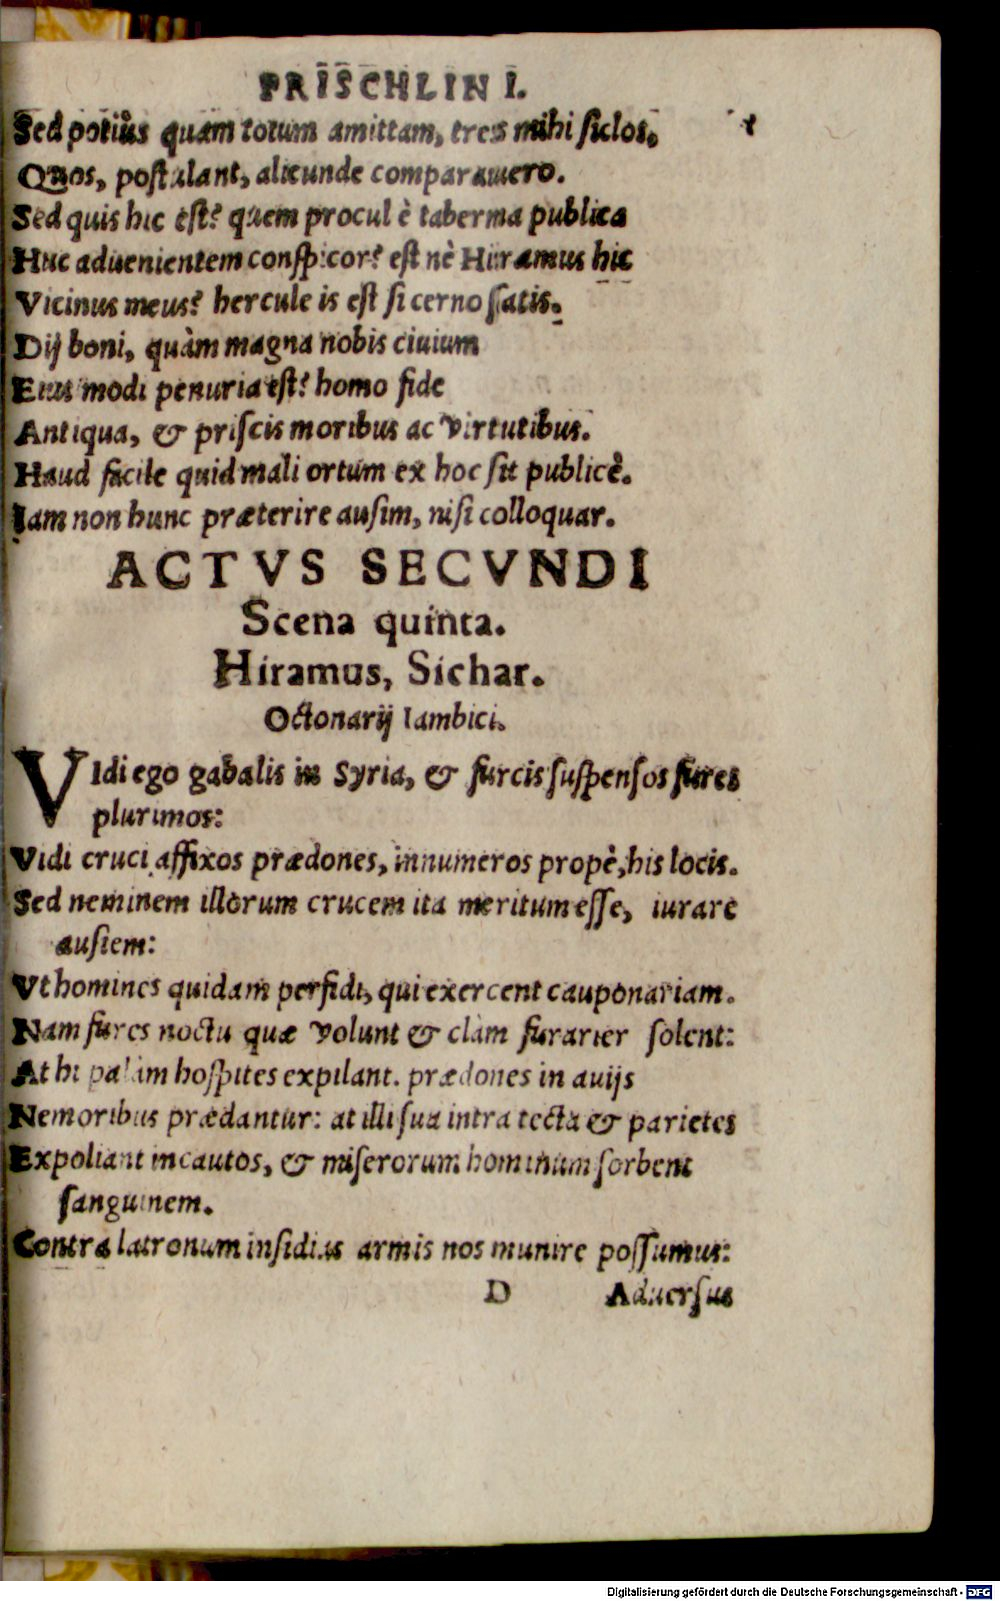 PRISCHLIN I.
Sed potiùs quàm totum amittam, tres mihi siclos,
Quos, postulant, alicunde comparauero.
Sed quis hic est? quem procul è taberma publica
Huc aduenientem conspicor? est nè Hiramus hic
Vicinus meus? hercule is est si cerno satis.
Dij boni, quàm magna nobis ciuium
Eius modi penuria est? homo fide
Antiqua, & priscis moribus ac virtutibus.
Haud facile quid mali ortum ex hoc sit publicè.
Iam non hunc præterire ausim, nisi colloquar.
ACTVS SECVNDI
Scena quinta.
Hiramus, Sichar.
Octonarij Iambici.
VIdi ego gabalis in Syria, & furcis suspensos fures
plurimos:
Vidi cruci affixos prædones, innumeros propè, his locis.
Sed neminem illorum crucem ita meritum esse, iurare
ausiem:
Vt homines quidam perfidi, qui exercent cauponariam.
Nam fures noctu quæ volunt & clàm furarier solent:
At hi palàm hospites expilant. prædones in auijs
Nemoribus prædantur: at illi sua intra tecta & parietes
Expoliant incautos, & miserorum hominum sorbent
sanguinem.
Contra latronum insidias armis nos munire possumus:
D Aduersus
Digitalisierung gefördert durch die Deutsche Forschungsgemeinschaft - DFG